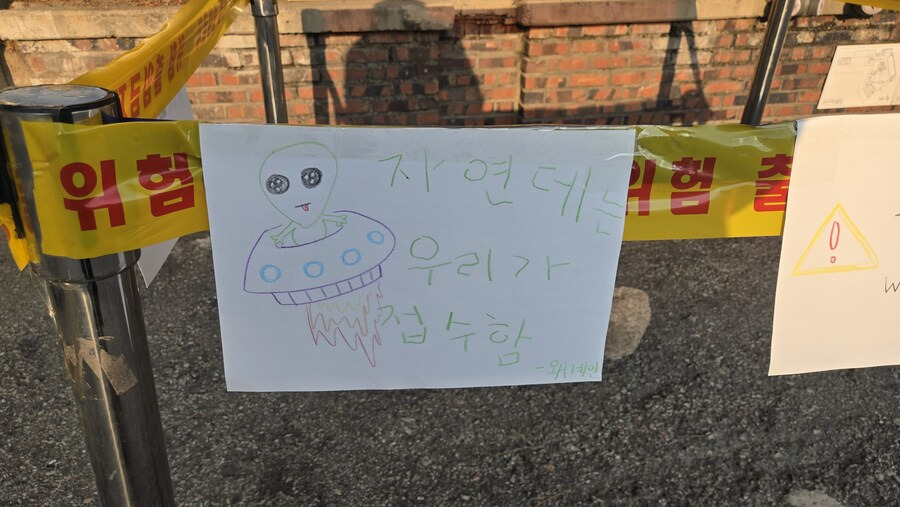 위험
자연데는
우리가
접수함
-외계인
위험 출